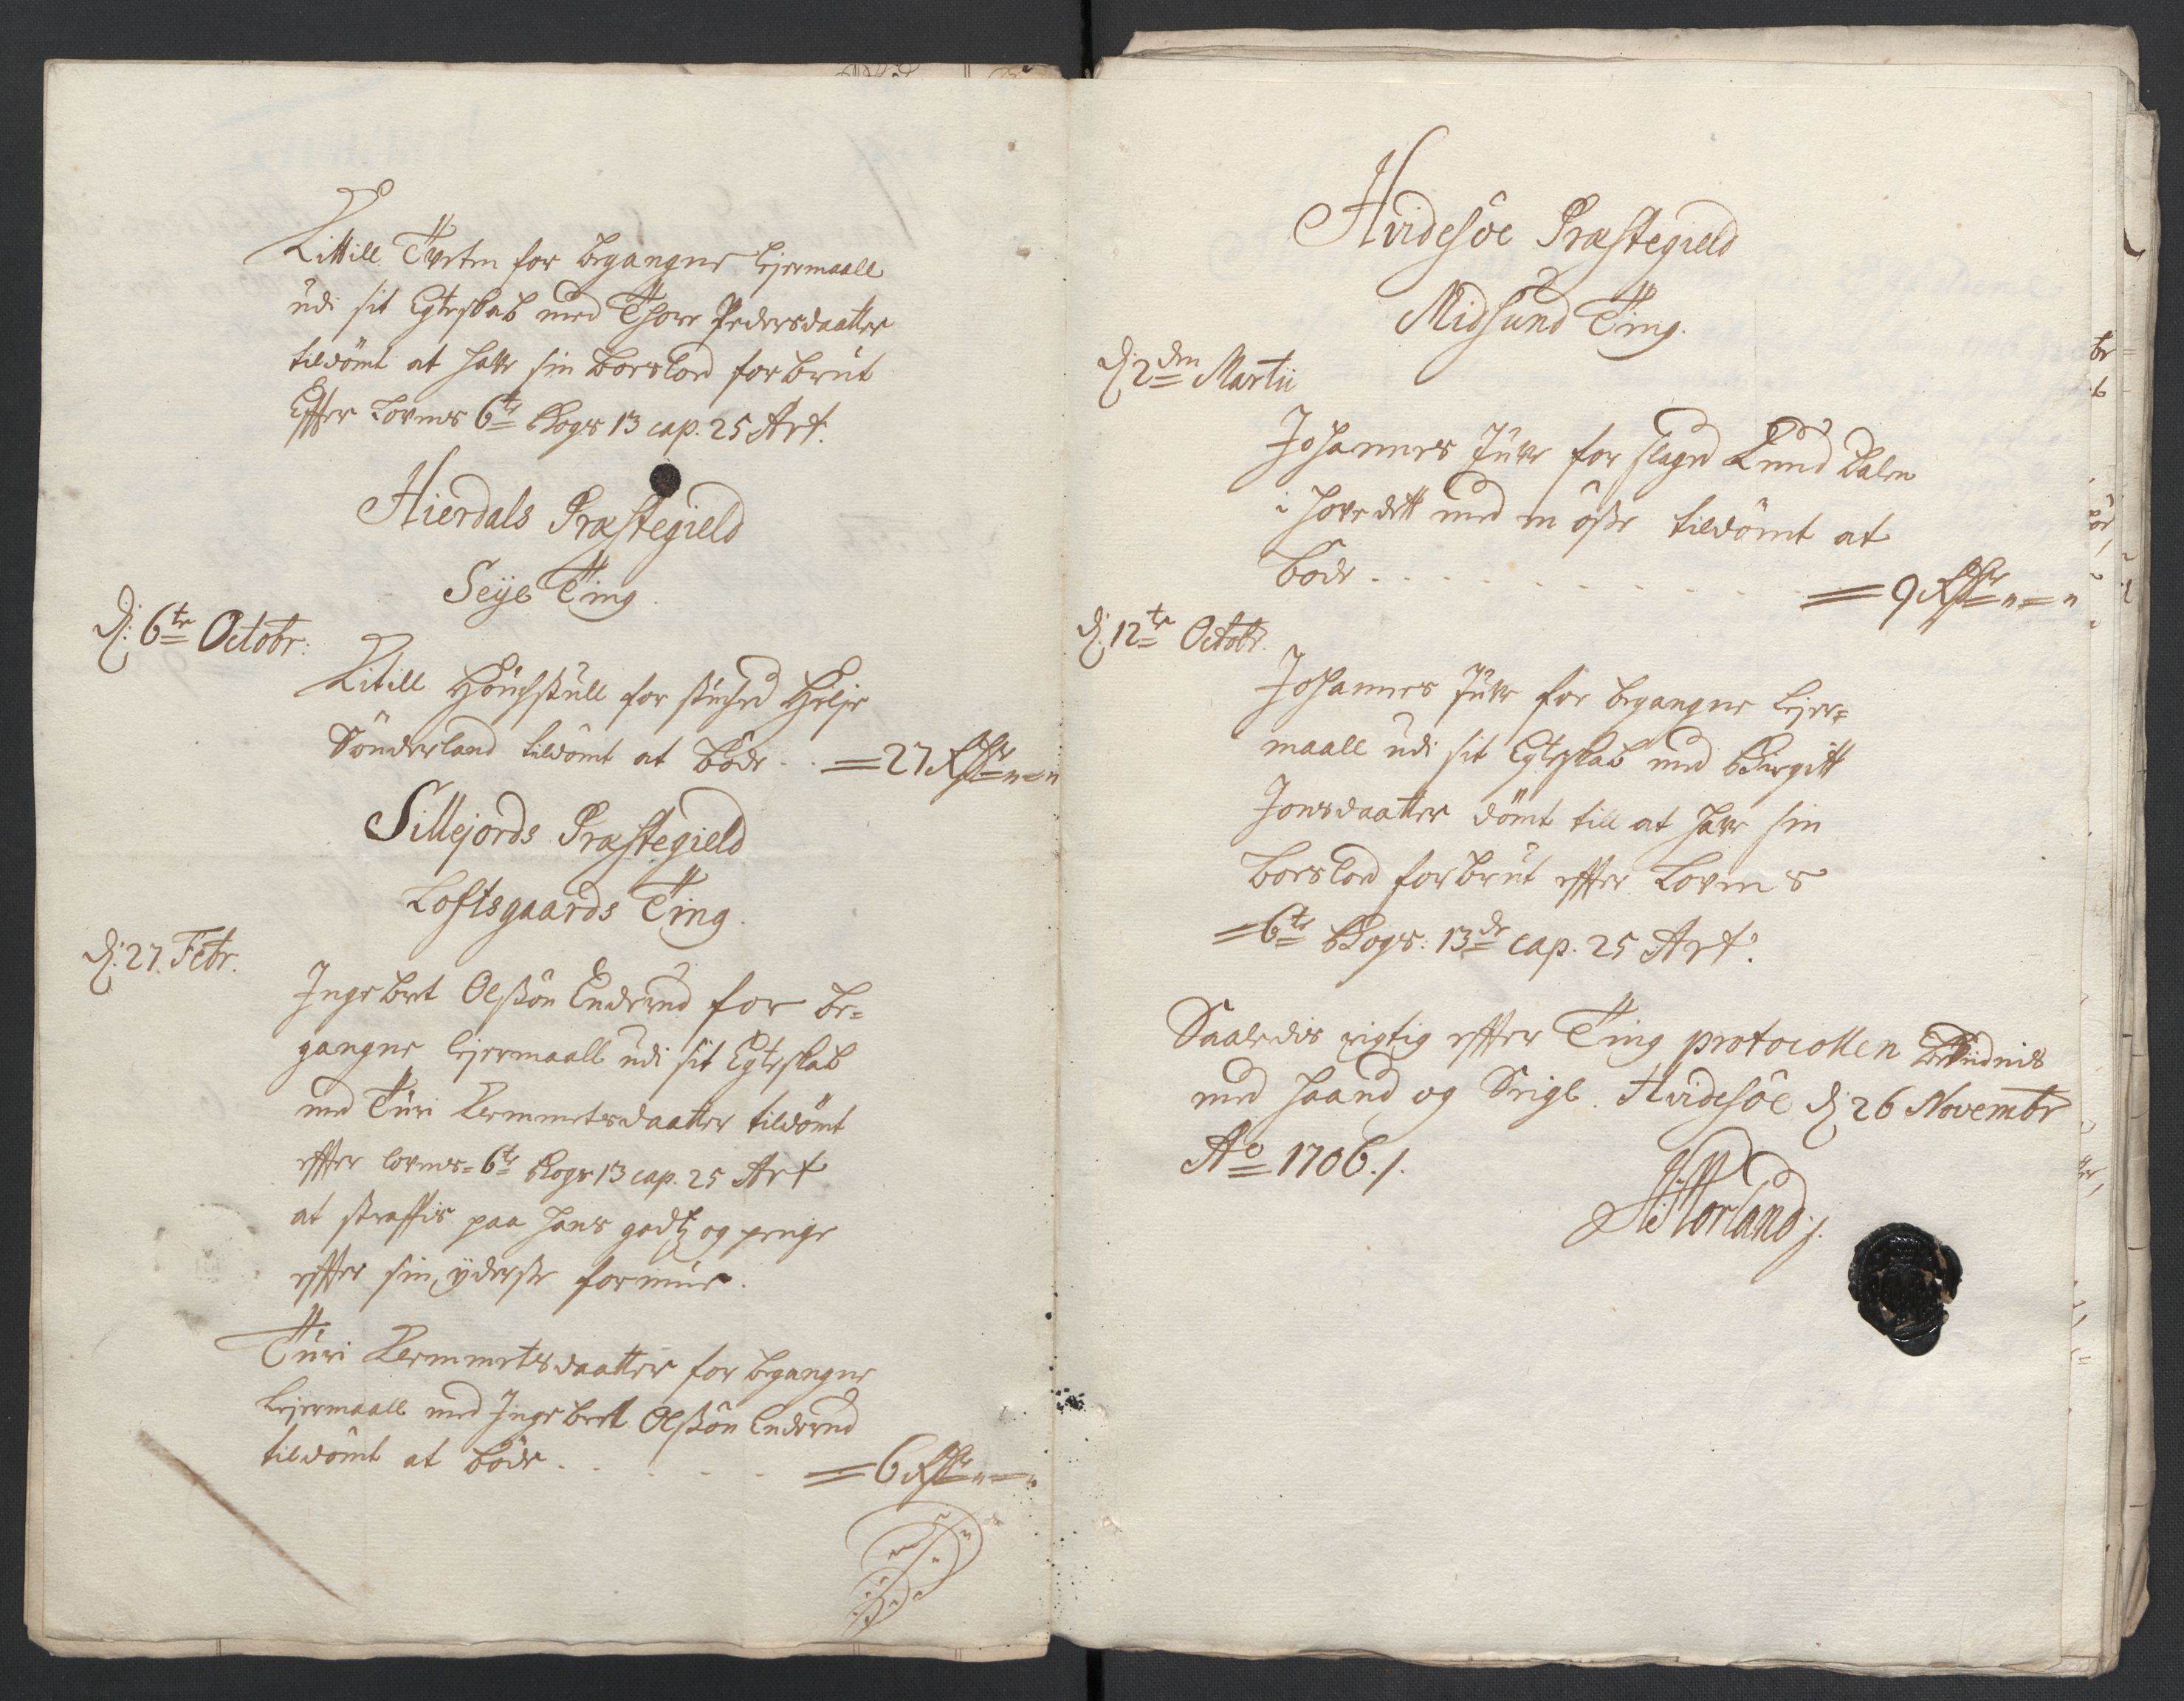 Kittill Tveten for begangne lejermaall
udi sit Egteskab med Thore Pedersdaatter
tildömt at hafve sin boeslod forbrut
Effter Lovens 6te Bogs 13 cap. 25 Art.
Hierdals Præstegield
Seÿe Ting
d: 6te Octobr:
Kitill for stuched Helje
Sönderland tildömt at böde . . = 27 Rdr - " = "
Sillejords Præstegield
Loftsgaards Ting.
d: 27. Febr.
Ingebret Olssön Enderud for be=
gangne lejermaall udi sit Egteskab
med Turi Kemmetsdaatter tildömt
effter lovens= 6te Bogs 13 cap. 25 Art
at straffis paa hans godtz og penge
effter sin yderste formue.
Turi Kemmetsdaatter for begangne
Lejermaall med Ingebret Olssön Enderud
tildömt at böde . . . . . = 6 Rdr - " = "
Hvidesöe Præstegield
Midsund Ting.
d: 2den Martii
Johannes Juve for slaged Knud Dalen
i hovedett med en öxe tildömt at
böde . . . . . . . . = 9 Rdr - " = "
d: 12te Octobr.
Johannes Juve for begangne Lejer=
maall udi sit Egteskab med Birgitt
Jonsdaatter dömt till at hafve sin
boeslod forbrut effter Lovens
=6te Bogs: 13de cap. 25 Art:
Saaledis rigtig effter Ting protocollen Bekiidnis
med haand og Seigl. Hvidesöe d: 26 Novembr
Ao 1706./.
Morland:/.